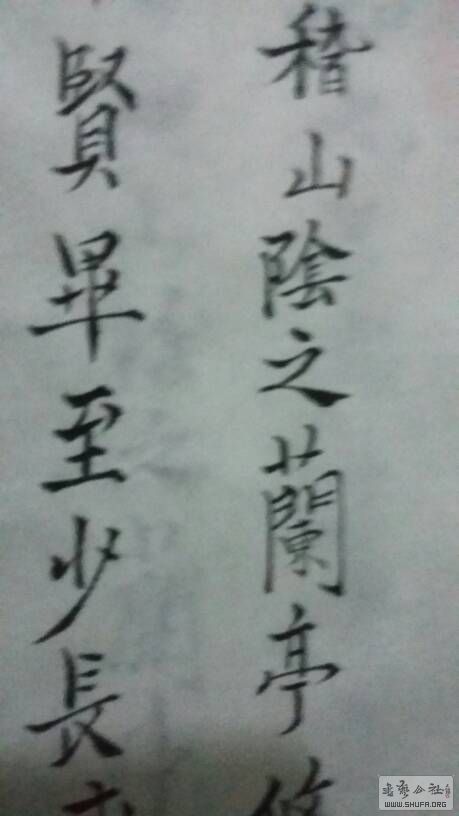 稽山陰之蘭亭脩
賢畢至少長咸
書法公社
WWW.SHUFA.ORG